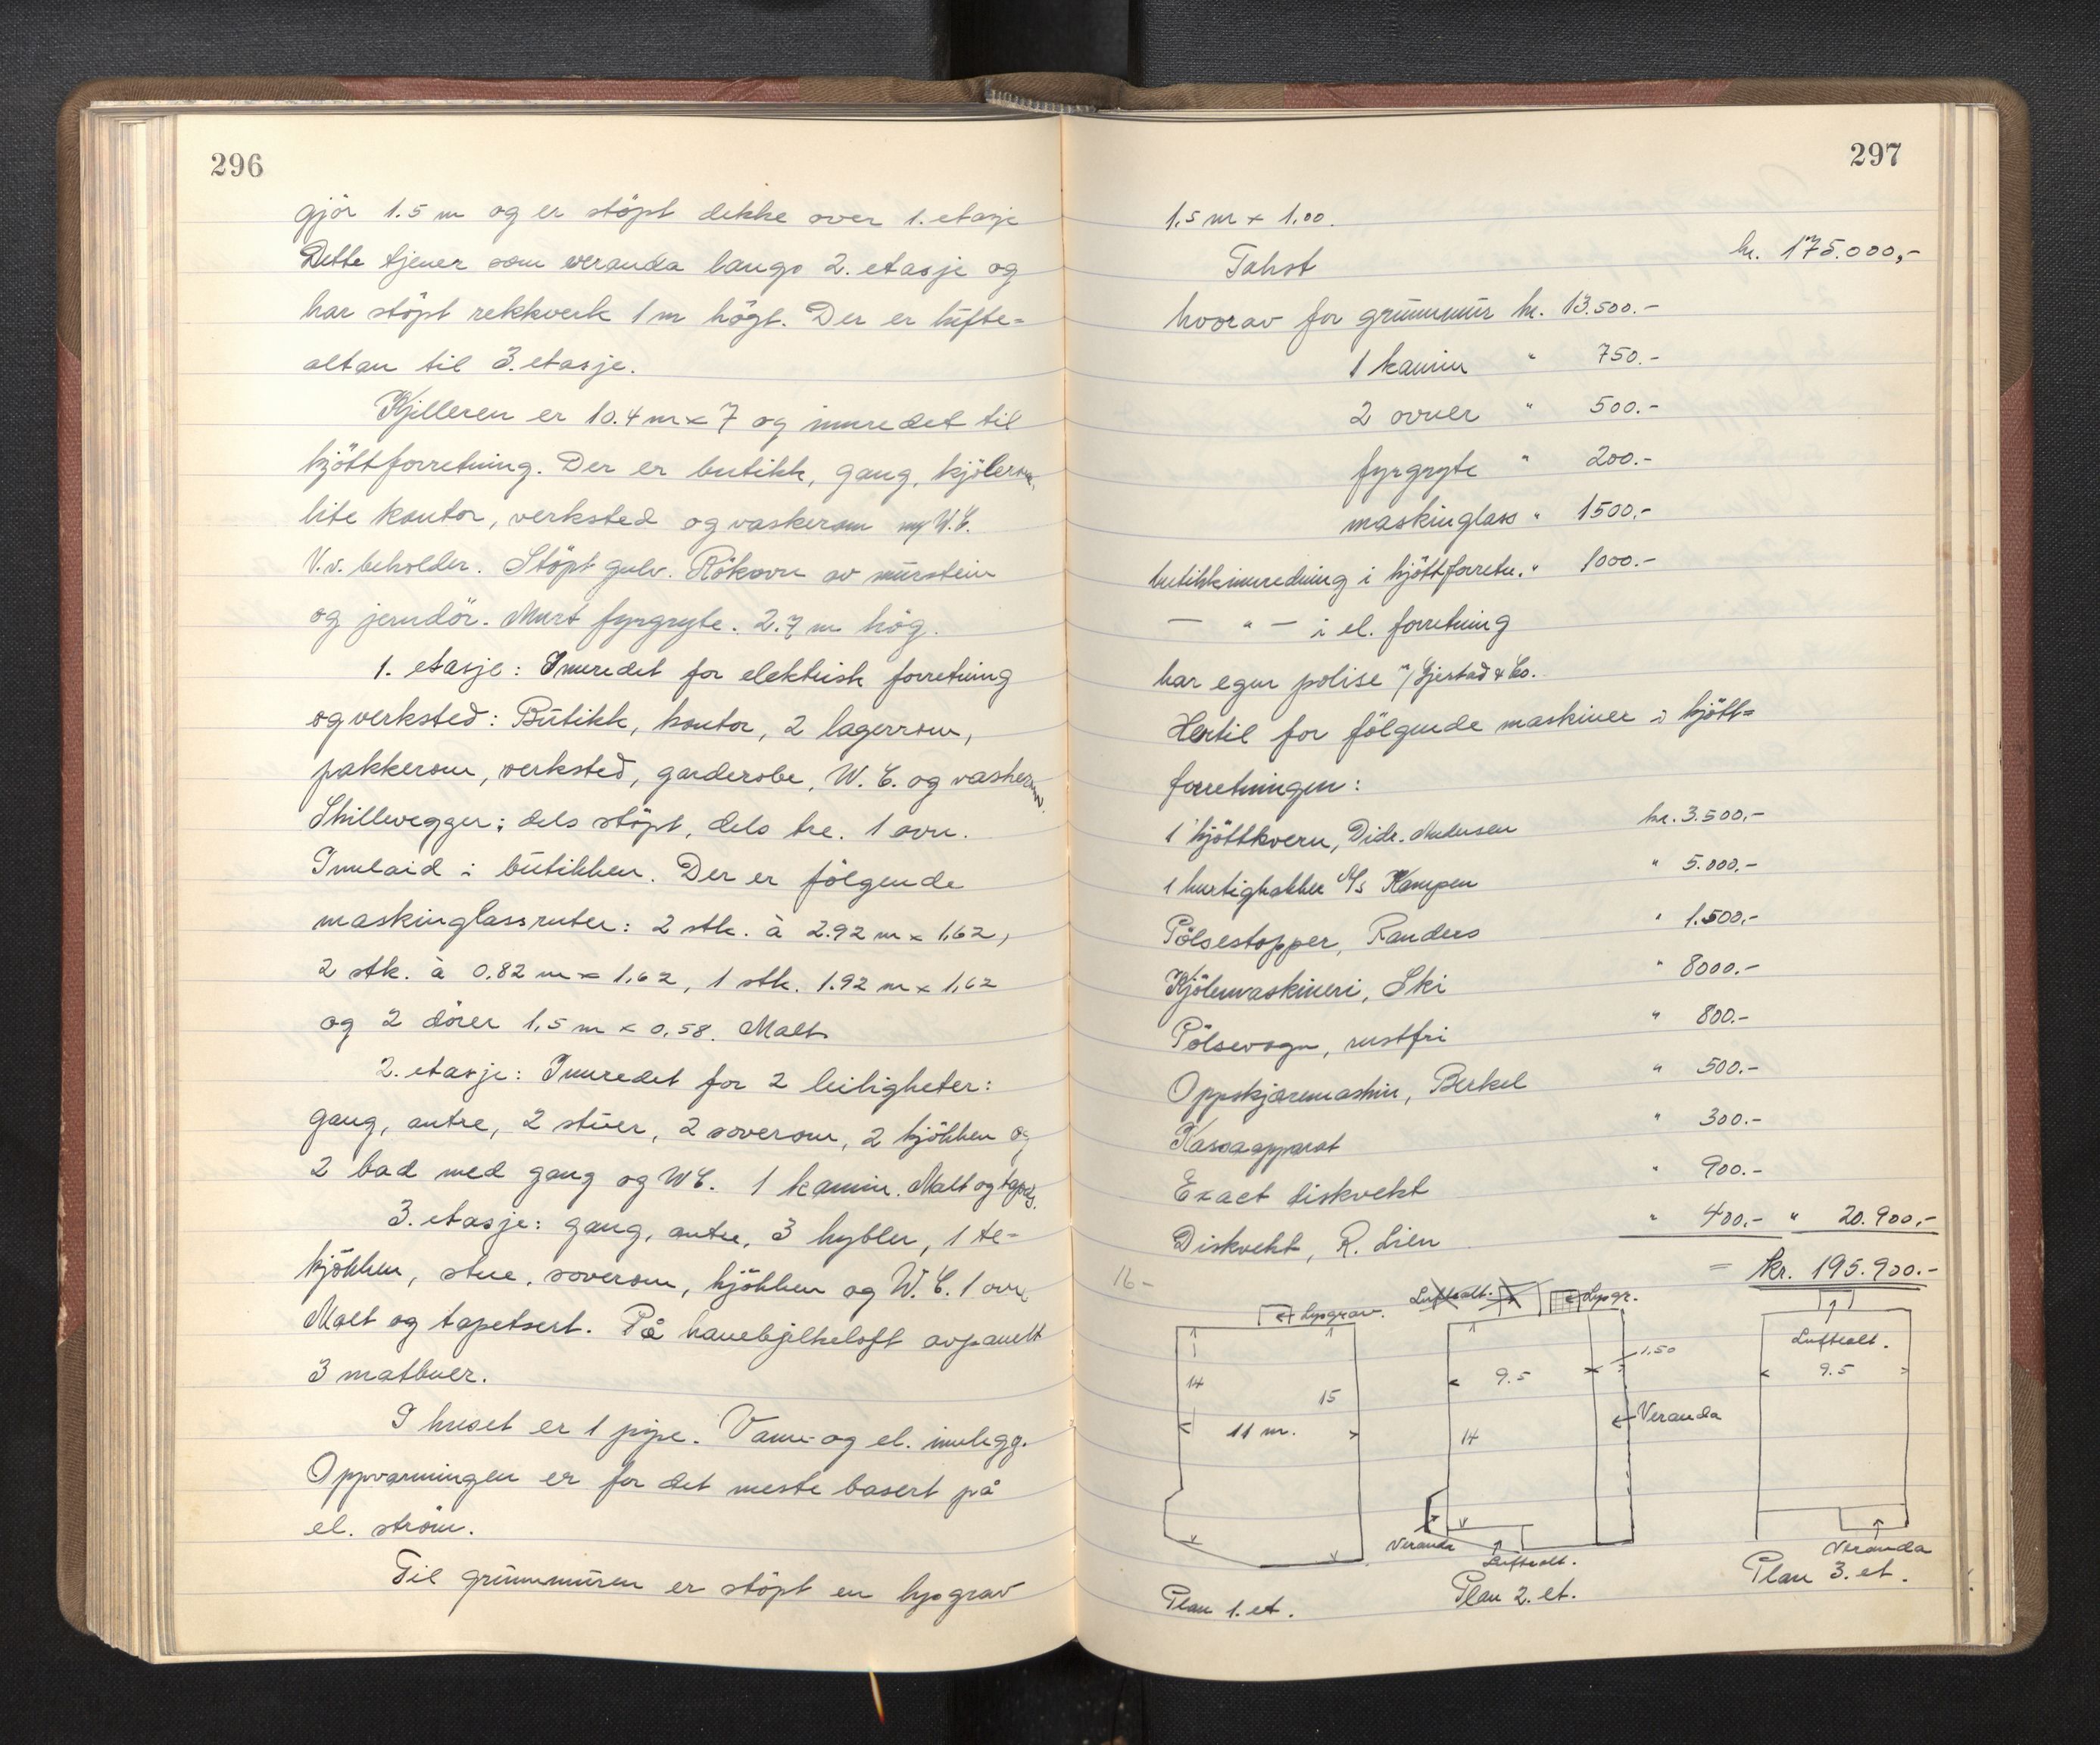 296
gjör 1.5 m og er stöpt dekke over 1. etasje
Dette tjener som veranda langs 2. etasje og
har stöpt rekkverk 1 m högt. Der er lufte-
altan til 3. etasje.
Kjelleren er 10.4 m x 7 og innredet til
kjöttforretning. Der er butikk, gang, kjölerom,
lite kontor, verksted og vaskerom m/W.C.
V.v. beholder. Stöpt gulv. Rökovn av murstein
og jerndör. Murt fyrgryte. 2.7 m hög.
1. etasje: Innredet for elektrisk forretning
og verksted: Butikk, kontor, 2 lagerrom,
pakkerom, verksted, garderobe, W.C. og vaskerom.
Skillevegger: dels stöpt, dels tre. 1 ovn.
Innlaid i butikken. Der er fölgende
maskinglassruter: 2 stk. à 2.92 m x 1,62,
2 stk. à 0.82 m x 1,62, 1 stk. 1.92 m x 1,62
og 2 dörer 1,5 m x 0,58. Malt
2. etasje: Innredet for 2 leiligheter:
gang, antre, 2 stuer, 2 soverom, 2 kjökken og
2 bad med gang og WC. 1 kamin. Malt og tapets.
3. etasje: gang, antre, 3 hybler, 1 te-
kjökken, stue, soverom, kjökken og W.C. 1 ovn
Malt og tapetsert. På hanebjelkeloft avpanelt
3 matbuer.
I huset er 1 pipe. Vann- og el. innlegg.
Oppvarmingen er for det meste basert på
el. ström.
Til grunnmuren er stöpt en lysgrav
297
1,5 m x 1,00.
Takst kr. 175.000,-
hvorav for grunnmur kr. 13.500.-
1 kamin " 750.-
2 ovner " 500.-
fyrgryte " 200.-
maskinglass " 1500,-
butikkinnredning i kjöttforretn. " 1000.-
— " — i el. forretning
har egen polise m/ Gjertsd & Co.
Hertil for fölgende maskiner i kjött-
forretningen:
1 kjöttkvern, Didr. Andersen kr. 3.500,-
1 hurtighakker A/s Kampen " 5.000,-
Pölsestopper, Randers " 1.500,-
Kjölemaskineri, Ski " 8000.-
Pölsevogn, rustfri " 800.-
Oppskjæremaskin, Berkel " 500.-
Kassaapparat " 300.-
Exact diskvekt " 900.-
Diskvekt, R. Lien " 400,- " 20.900,-
= kr. 195.900.-
16-
Lysgrav.
14
15
11 m.
Plan 1. et.
Luftealt.
Lysgr.
1,50
9.5
Veranda
14
Veranda
Luftealt.
Plan 2. et.
Luftealt.
9.5
Veranda
Plan 3. et.